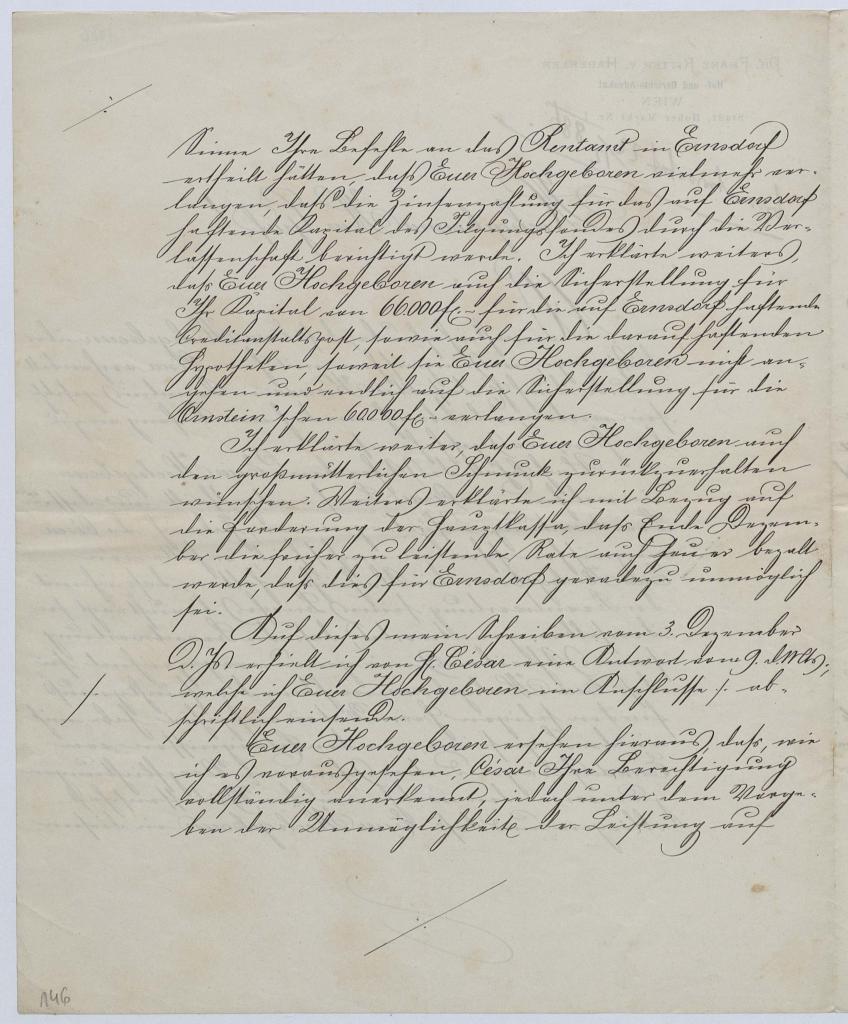 Sinne Ihre Befehle an das Rentamt in Ernsdorf
ertheilt hätten, dass Euer Hochgeboren vielmehr ver-
langen dass die Zinsenzahlung für das auf Ernsdorf
haftende Kapital des Tilgungsfondes durch die Ver-
lassenschaft berichtigt werde. Ich erklärte weiters,
dass Euer Hochgeboren auch die Sicherstellung für
Ihr Kapital von 66.000 f.- für die auf Ernsdorf haftende
Creditanstaltspost, sowie auch für die darauf haftenden
Hypotheken, soweit sie Euer Hochgeboren nicht an-
gehen und endlich auf die Sicherstellung für die
Ernstein'schen 60000 f.- verlangen.
Ich erklärte weiter, dass Euer Hochgeboren auch
den großmütterlichen Schmuck zurückzuerhalten
wünschen. Weiters erklärte ich mit Bezug auf
die Forderung der Hauptkassa, dass Ende Dezem-
ber die früher zu leistende Rate auch heuer bezalt
werde, dass dies für Ernsdorf geradezu unmöglich
sei.
Auf dieses mein Schreiben vom 3. Dezember
d. Js. erhielt ich von H. César eine Antwort vom 9. d. Mts,
welche ich Euer Hochgeboren im Anschlusse ./. ab-
schriftlich einsende.
Euer Hochgeboren ersehen hieraus, dass, wie
ich es vorausgesehen, César Ihre Berechtigung
vollständig anerkennt, jedoch unter dem Vorge-
ben der Unmöglichkeit der Leistung auf
146